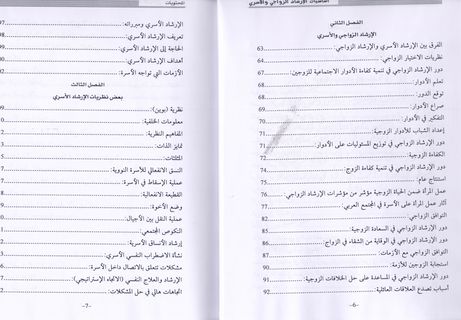 أساسيات الإرشاد الزواجي والأسري
الفصل الثاني
الإرشاد الزواجي والأسري
الفرق بين الإرشاد الأسري والإرشاد الزواجي: 63
نظريات الاختيار الزواجي: 64
دور الإرشاد الزواجي في تنمية كفاءة الأدوار الاجتماعية للزوجين: 67
تعلم الأدوار: 68
توقع الدور: 68
صراع الأدوار: 69
التفكير في الأدوار: 70
إعداد الشباب للأدوار الزوجية: 71
دور الإرشاد الزواجي في توزيع المسئوليات على الأدوار: 71
الكفاءة الزوجية: 72
دور الإرشاد الزواجي في تنمية كفاءة الزوج: 74
استنتاج عام: 75
عمل المرأة ضمن الحياة الزوجية مؤشر من مؤشرات الإرشاد الزواجي: 76
آثار عمل المرأة على الأسرة في المجتمع العربي: 77
التوافق الزواجي: 82
دور الإرشاد الزواجي في السعادة الزوجية: 85
دور الإرشاد الزواجي في الوقاية من الشقاء في الزواج: 86
التوافق الزواجي مع الأزمات: 87
استجابة الزوجين للأزمة: 90
دور الإرشاد الزواجي في المساعدة على حل الخلافات الزوجية: 91
أسباب تصدع العلاقات العائلية: 92
-6-
المحتويات
الإرشاد الأسري ومبرراته:
تعريف الإرشاد الأسري:
الحاجة إلى الإرشاد الأسري:
أهداف الإرشاد الأسري:
الأزمات التي تواجه الأسرة:
الفصل الثالث
بعض نظريات الإرشاد الأسري
نظرية (بوين):
معلومات الخلفية:
المفاهيم النظرية:
تمايز الذات:
المثلثات:
النسق الانفعالي للأسرة النووية:
عملية الإسقاط في الأسرة:
القطيعة الانفعالية:
وضع الأخوة:
عملية النقل بين الأجيال:
النكوص المجتمعي:
إرشاد الأنساق الأسرية:
نشأة الاضطراب النفسي الأسري:
مشكلات تتعلق بالاتصال داخل الأسرة:
الإرشاد والعلاج النفسي (الاتجاه الإستراتيجي):
اتجاهات هالي في حل المشكلات:
-7-